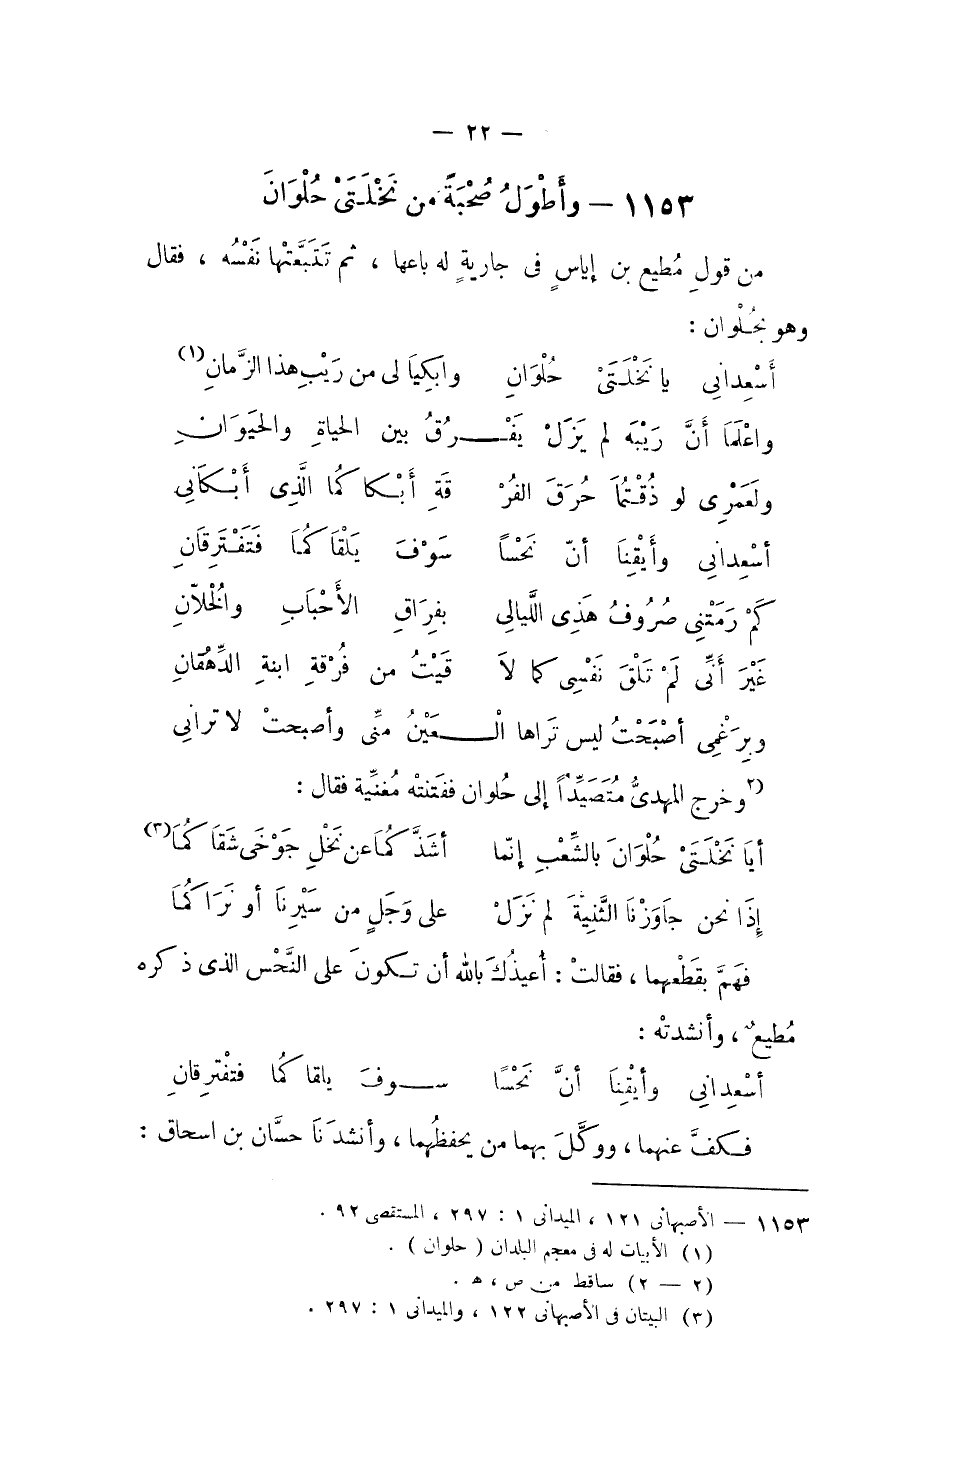 — ٢٢ —
١١٥٣ — وأَطْوَلُ صُحْبَةً من نَخْلَتَىْ حُلْوَانَ
من قولِ مُطيع بن إياسٍ فى جاريةٍ له باعها ، ثم تَتَبَّعَتْها نَفْسُه ، فقال
وهو بحُلْوان :
أَسْعِدانِى يا نَخْلَتَىْ حُلْوَانِ وابكِيَا لى من رَيْبِ هذا الزَّمانِ(١)
واعْلَمَا أَنَّ رَيْبَه لم يَزَلْ يَفْــرُقُ بين الحياةِ والحَيَوَانِ
ولَعَمْرِى لو ذُقْتُمَا حُرَقَ الفُرْ قَةِ أَبْكاكُما الَّذِى أَبْكَانِى
أسْعِدانِى وأَيْقِنَا أنّ نَحْساً سَوْفَ يَلْقَاكُمَا فَتَفْتَرِقَانِ
كَمْ رَمَتْنِى صُرُوفُ هَذِى اللَّيالِى بفِرَاقِ الأَحْبَابِ والخُلاّنِ
غَيْرَ أَنِّى لَمْ تَلْقَ نَفْسِى كما لاَ قَيْتُ من فُرْقةِ ابنةِ الدِّهْقانِ
وبِرَغْمِى أصْبَحْتُ ليس تَراها الْــعَيْنُ مِنِّى وأصبحتْ لا ترانِى
(٢وخرج المهدىُّ مُتَصَيِّداً إلى حُلوان ففَتنتْه مُغنِّية فقال :
أيَا نَخْلَتَىْ حُلْوَانَ بالشِّعْبِ إنّما أشَذَّكُمَا عن نَخْلِ جَوْخَى شَقَاكُمَا(٣)
إِذَا نحن جاوَزْنَا الثَّنِيةَ لم نَزَلْ على وَجَلٍ من سَيْرِنَا أو نَرَاكُمَا
فهَمَّ بقَطْعِهما ، فقالتْ : أُعيذُكَ بالله أن تكونَ على النَّحْس الذى ذكره
مُطيعٌ ، وأنشدتْه :
أسْعِدانِى وأيْقِنَا أنَّ نَحْسًا ســوفَ يلقاكُما فتفْترِقانِ
فكفَّ عنهما ، ووكَّلَ بهما من يحفظُهما ، وأنشدَنَا حسَّان بن اسحاق :
١١٥٣ — الأصبهانى ١٢١ ، الميدانى ١ : ٢٩٧ ، المستقصى ٩٢ .
(١) الأبيات له فى معجم البلدان ( حلوان ) .
(٢ — ٢) ساقط من ص ، ﻫ .
(٣) البيتان فى الأصبهانى ١٢٢ ، والميدانى ١ : ٢٩٧ .